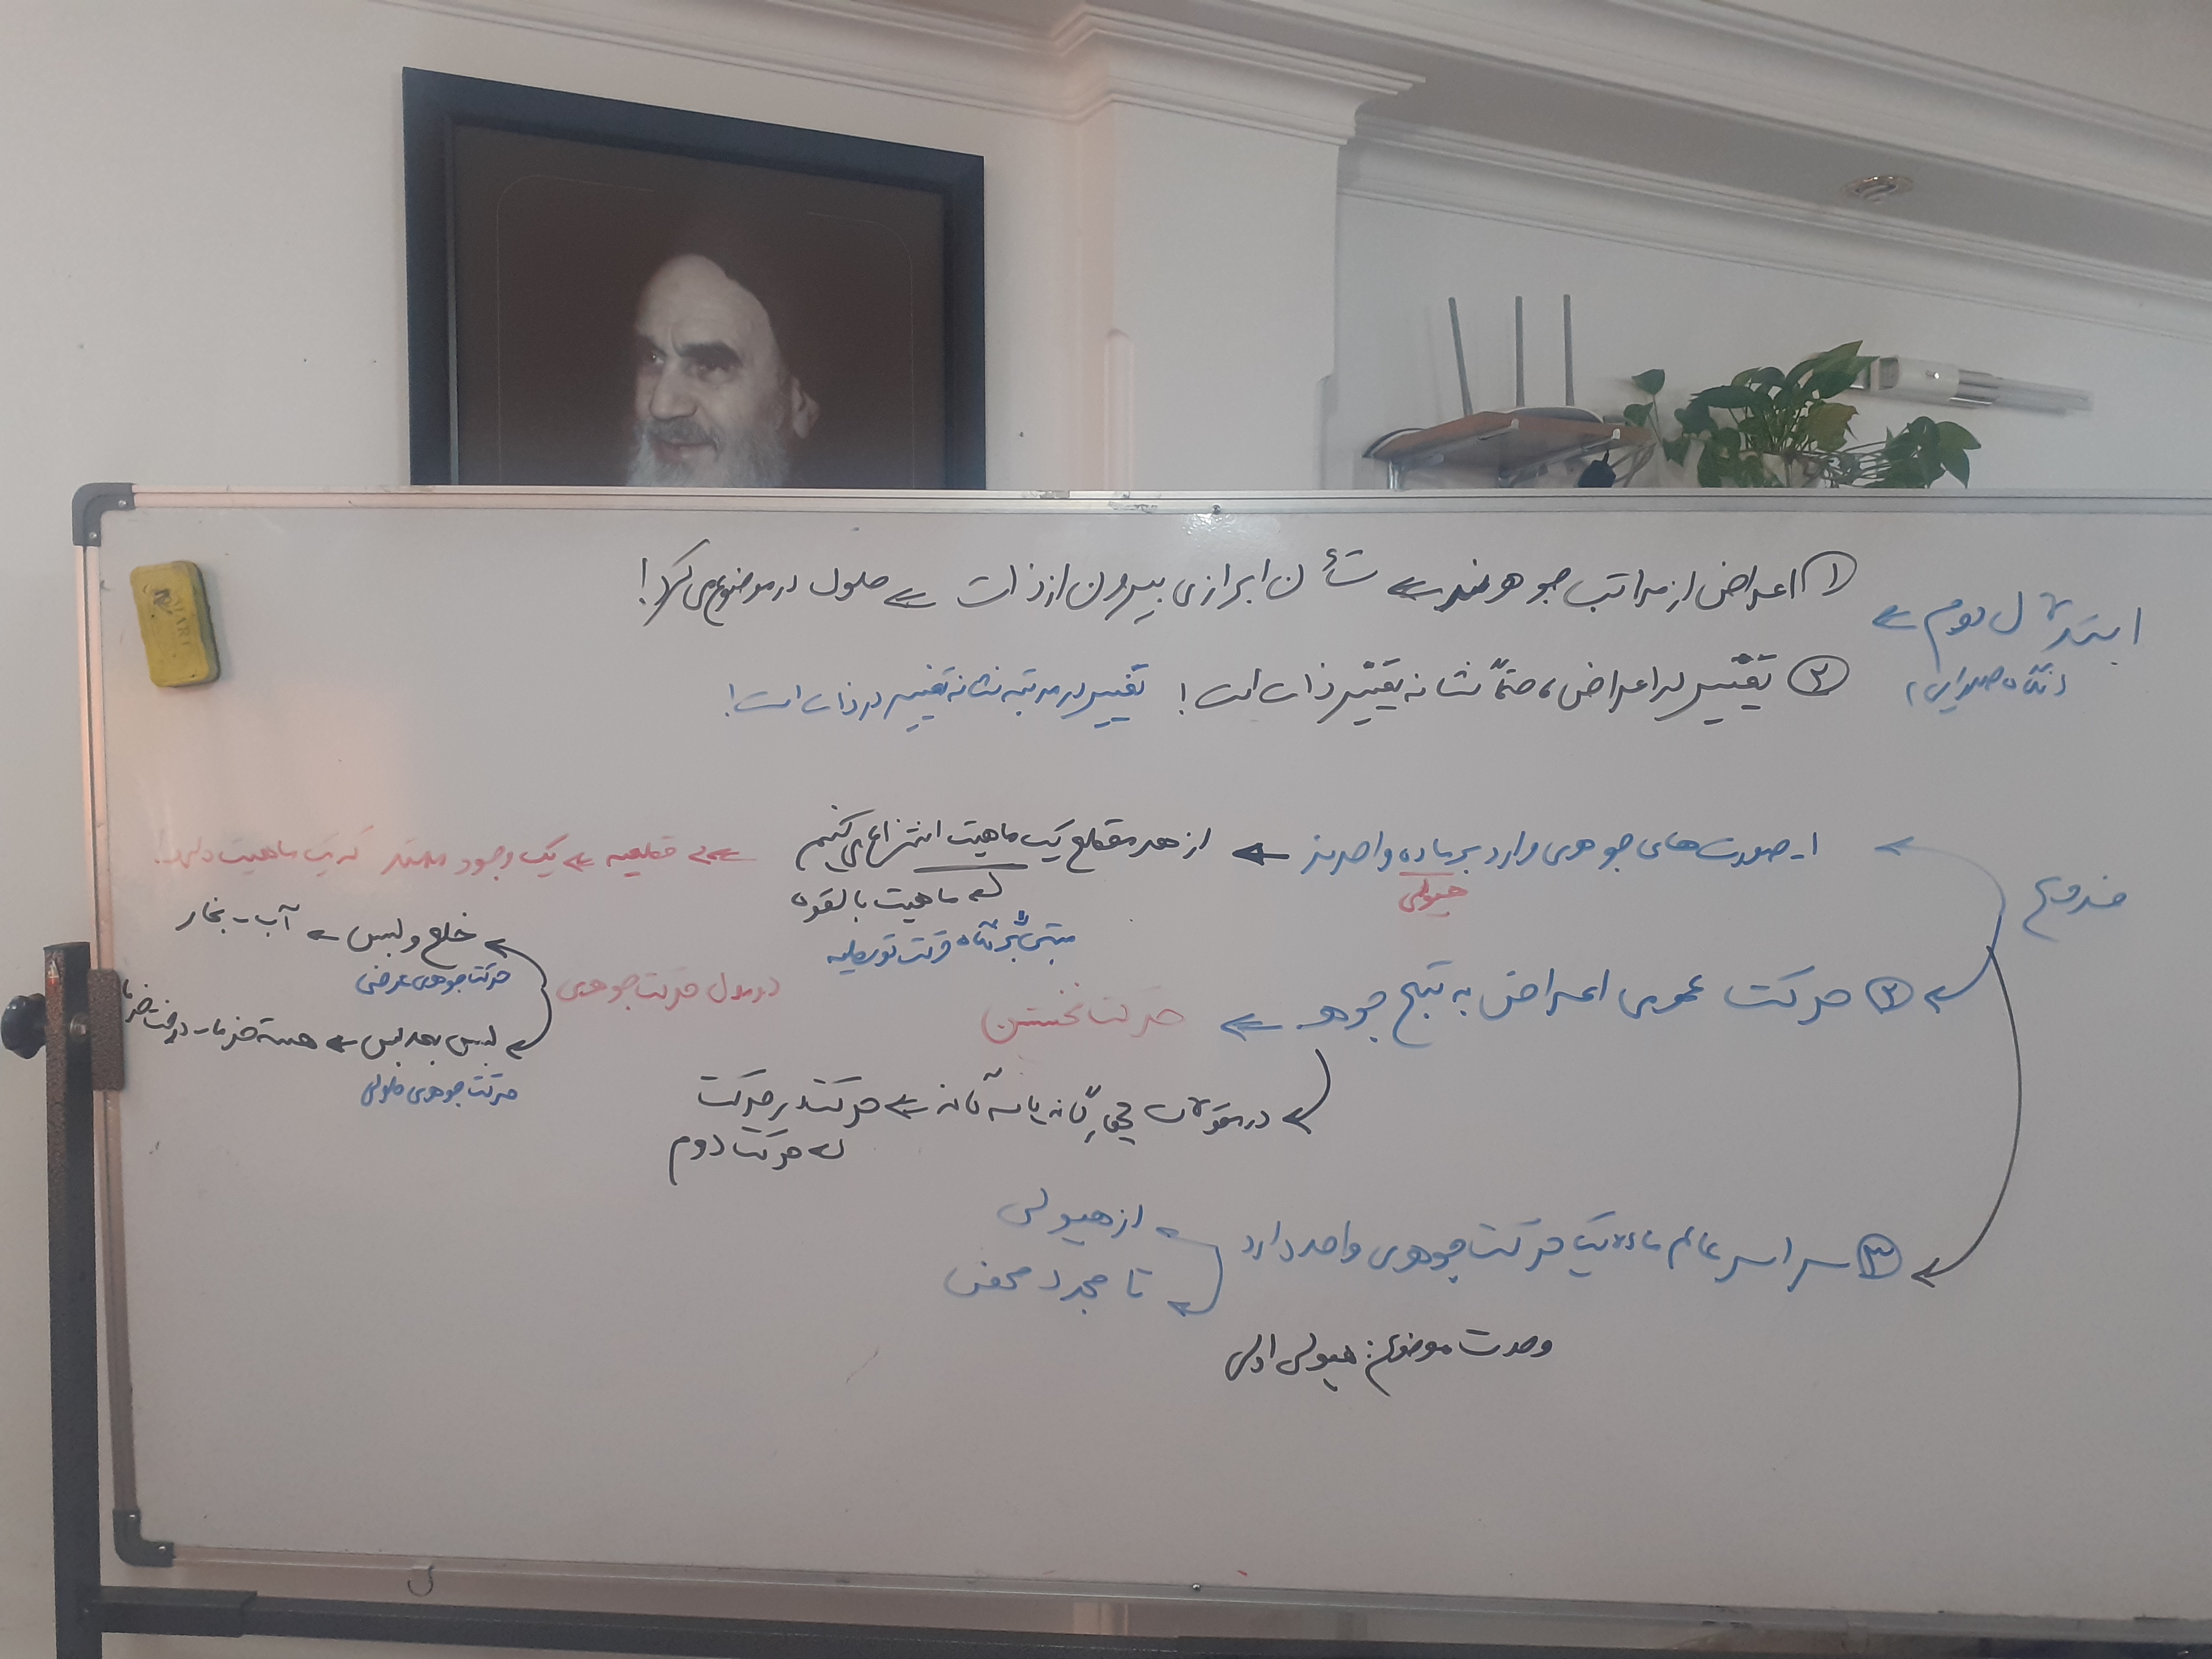 استدلال دوم ⇐
(نگاه صدرایی)
① اعراض از مراتب جوهرند ⇐ شأن ابرازی بیرون از ذات ⇐ حلول در موضوع می‌کرد!
② تغیّر در اعراض، حتماً نشانه تغیّر ذات است! تغییر در مرتبه نشانه تغییر در ذات است!
فروع
۱- صورت‌های جوهری وارد بر ماده واحدند ⇐ از هر مقطع یک ماهیت انتزاع می‌کنیم
هیولی
ماهیت بالقوه
مبتنی بر نگاه حرکت توسطیه
قطعیه ⇐ یک وجود ممتد که یک ماهیت دارد!
② حرکت عمومی اعراض به تبع جوهر ⇐ حرکت نخستین
در مقولات چهارگانه یا سه‌گانه ⇐ حرکت در حرکت
حرکت دوم
دو مدل حرکت جوهری
خلع و لبس ⇐ آب - بخار
حرکت جوهری عرضی
لبس بعد لبس ⇐ هسته خرما - درخت خرما
حرکت جوهری طولی
③ سراسر عالم ماده یک حرکت جوهری واحد دارد
از هیولی
تا مجرد محض
وحدت موضوع: هیولی اولی